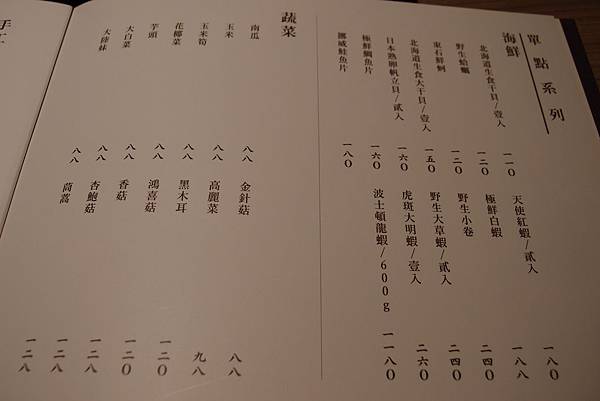 單點系列
海鮮
北海道生食干貝/壹入 一一〇
野生蛤蠣 一二〇
東石鮮蚵 一二〇
北海道生食大干貝/壹入 一五〇
日本熟卵帆立貝/貳入 一六〇
極鮮鯛魚片 一六〇
挪威鮭魚片 一八〇
天使紅蝦/貳入 一八〇
極鮮白蝦 一八八
野生小卷 二四〇
野生大草蝦/貳入 二四〇
虎斑大明蝦/壹入 二六〇
波士頓龍蝦/600g 一一八〇
蔬菜
南瓜 八八
玉米 八八
玉米筍 八八
花椰菜 八八
芋頭 八八
大白菜 八八
大陸妹 八八
金針菇 八八
高麗菜 九八
黑木耳 一二〇
鴻喜菇 一二〇
香菇 一二八
杏鮑菇 一二八
茼蒿 一二八